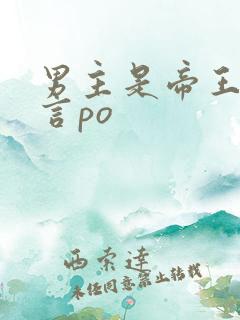 男主是帝王
言po
西索達
未经同意禁止转载